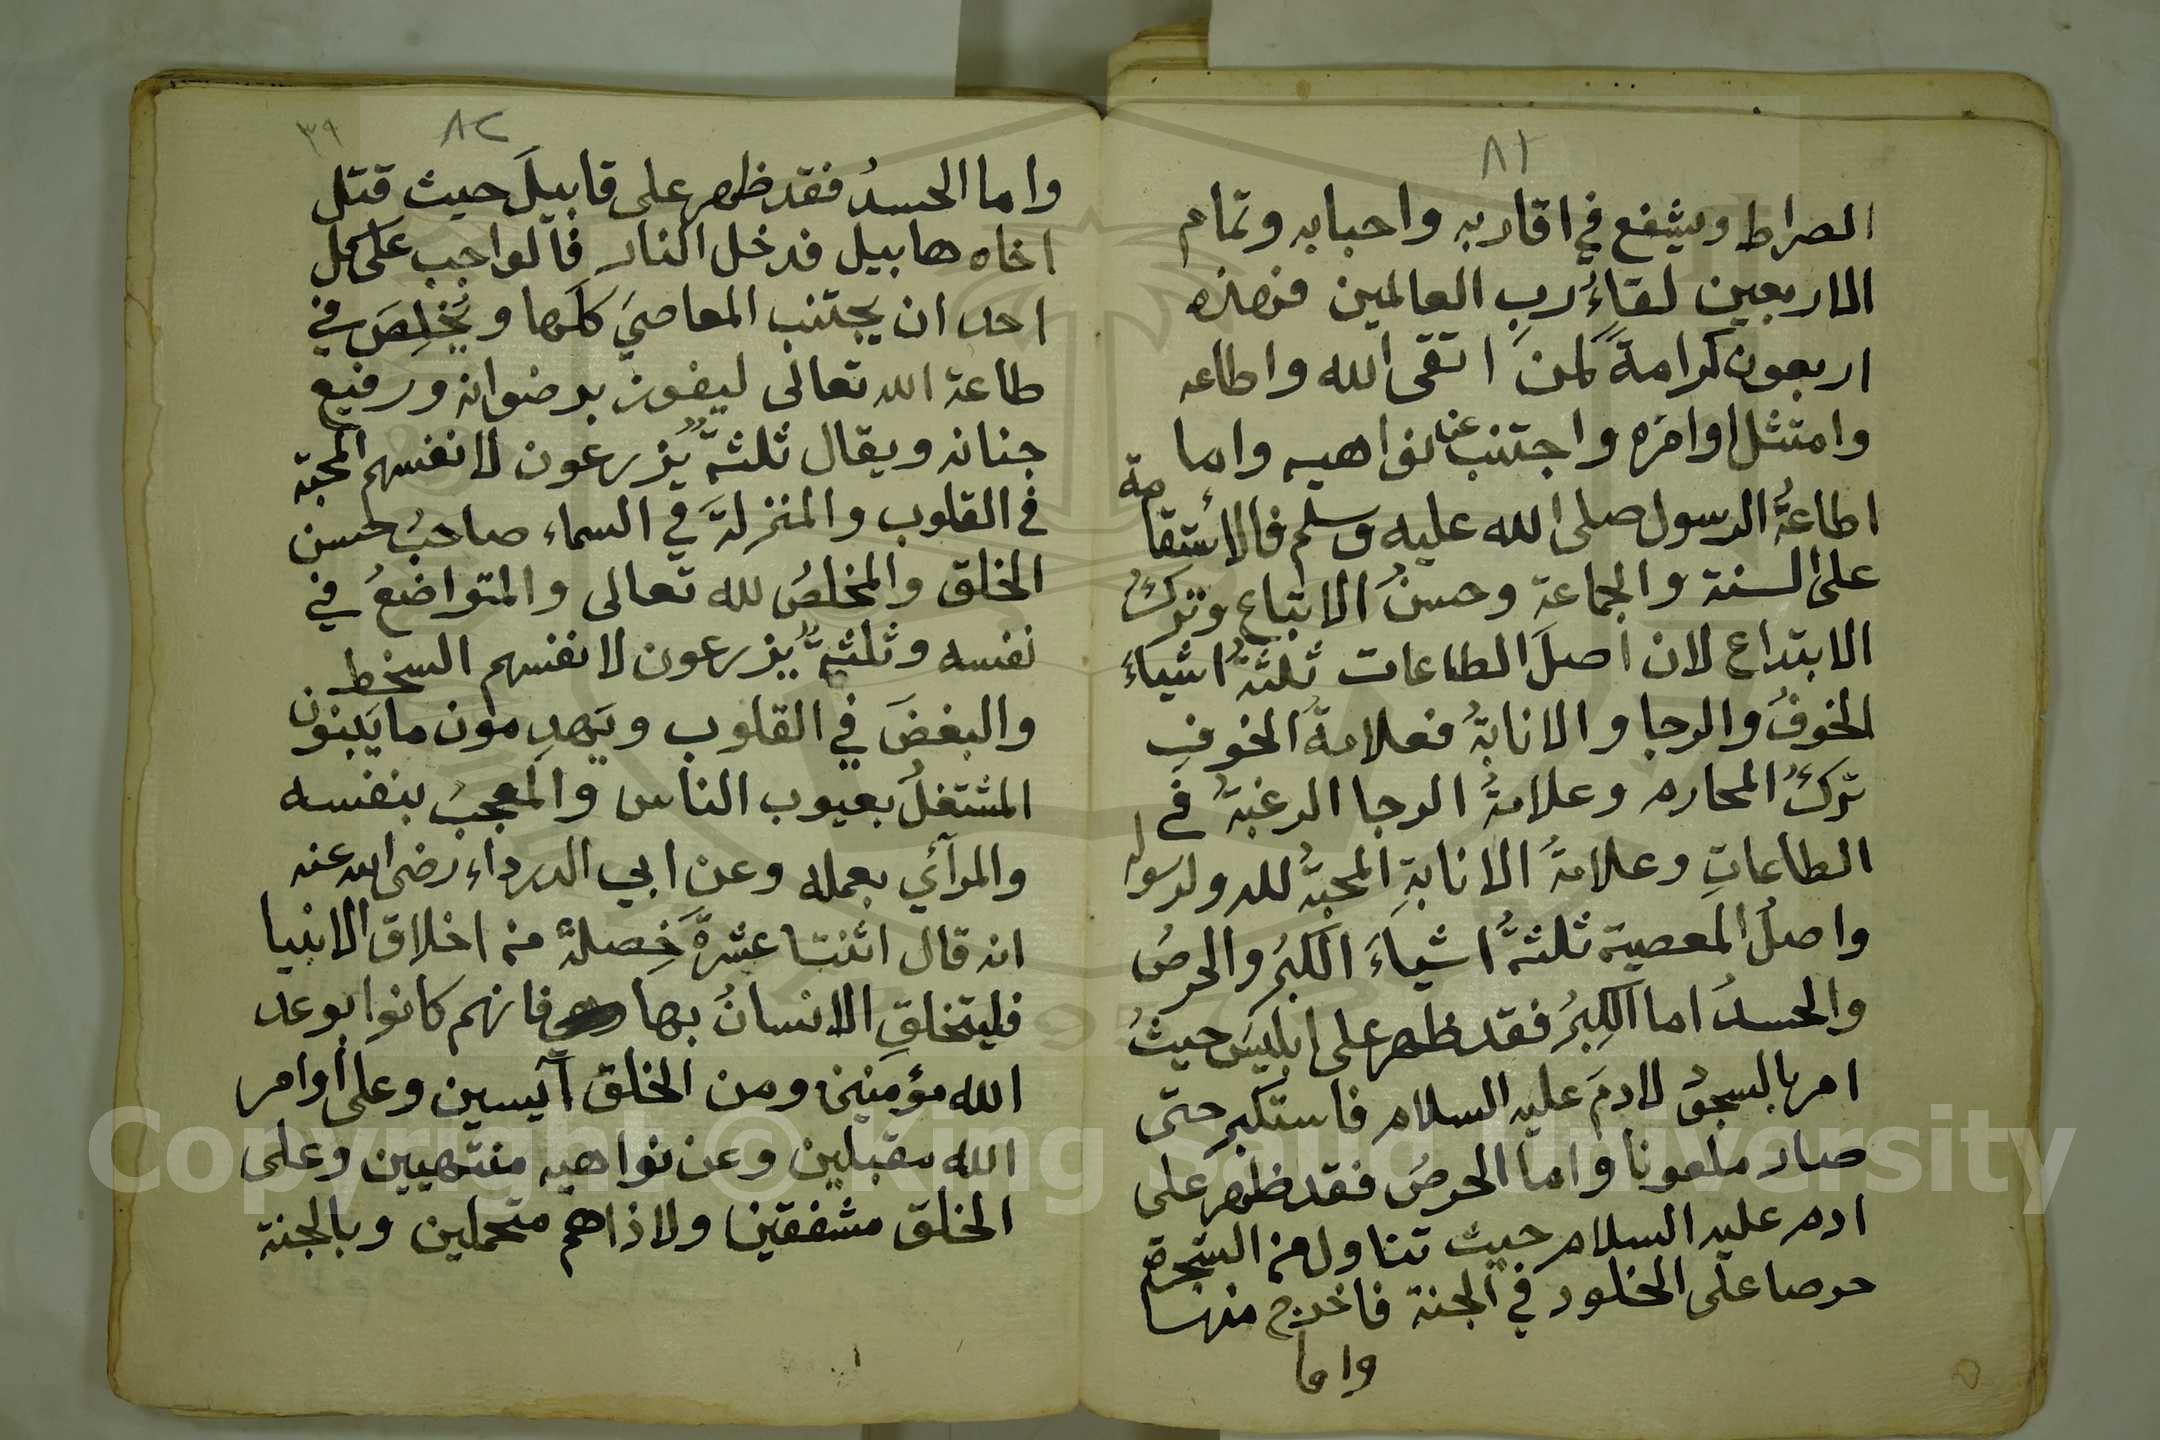 ٨١
الصراط ويشفع في اقاربه واحبابه وتمام
الاربعين لقاءُ ربِ العالمين فهذه
اربعون كرامةً لمن اتقى الله واطاعه
وامتثل اوامره واجتنب عن نواهيه واما
اطاعةُ الرسول صلى الله عليه وسلم فالاستقامة
على السنة والجماعة وحسنُ الاتباع وتركُ
الابتداع لان اصلَ الطاعات ثلثةُ اشياءَ
الخوفُ والرجا والانابةُ فعلامةُ الخوفِ
تركُ المحارم وعلامةُ الرجا الرغبةُ في
الطاعاتِ وعلامةُ الانابةِ المحبةُ لله ولرسوله
واصلُ المعصية ثلثةُ اشياءَ الكبرُ والحرصُ
والحسدُ اما الكِبرُ فقد ظهر على ابليسَ حيثُ
امر بالسجود لادمَ عليه السلام فاستكبر حتى
صار ملعونا واما الحرصُ فقد ظهر على
ادم عليه السلام حيث تناول من الشجرة
حرصا على الخلود في الجنة فاخرج منها
واما
٨٢
٣٩
واما الحسدُ فقد ظهر على قابيلَ حيث قتل
اخاه هابيل فدخل النار فالواجب على كل
احد ان يجتنب المعاصيَ كلَها ويُخلِصَ في
طاعة الله تعالى ليفوز برضوانه ورفيع
جنانه ويقال ثلثةٌ يزرعون لانفسهم المحبة
في القلوب والمنزلةَ في السماء صاحبُ حسن
الخلق والمخلصُ لله تعالى والمتواضعُ في
نفسه وثلثةٌ يزرعون لانفسهم السخط
والبغضَ في القلوب ويَهدِمون ما يَبنون
المشتغلُ بعيوب الناس والمعجبُ بنفسه
والمرآئي بعمله وعن ابي الدرداء رضي الله عنه
انه قال اثنتا عشرةَ خَصِلةً من اخلاق الانبيا
فليتخلقِ الانسانُ بها فانهم كانوا بوعد
الله مؤمنين ومن الخلق آيسين وعلى أوامر
الله مقبلين وعن نواهيه منتهيين وعلى
الخلق مشفقين ولاذاهم متحملين وبالجنة
Copyright © King Saud University